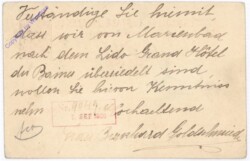 Verständige Sie hiemit,
dass wir von Marienbad
nach dem Lido Grand Hôtel
des Bains übersiedelt sind,
wollen Sie hievon Kenntniss
nehmen
Hochachtend
Bernhard Goldschmied